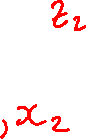 z₂
,x₂